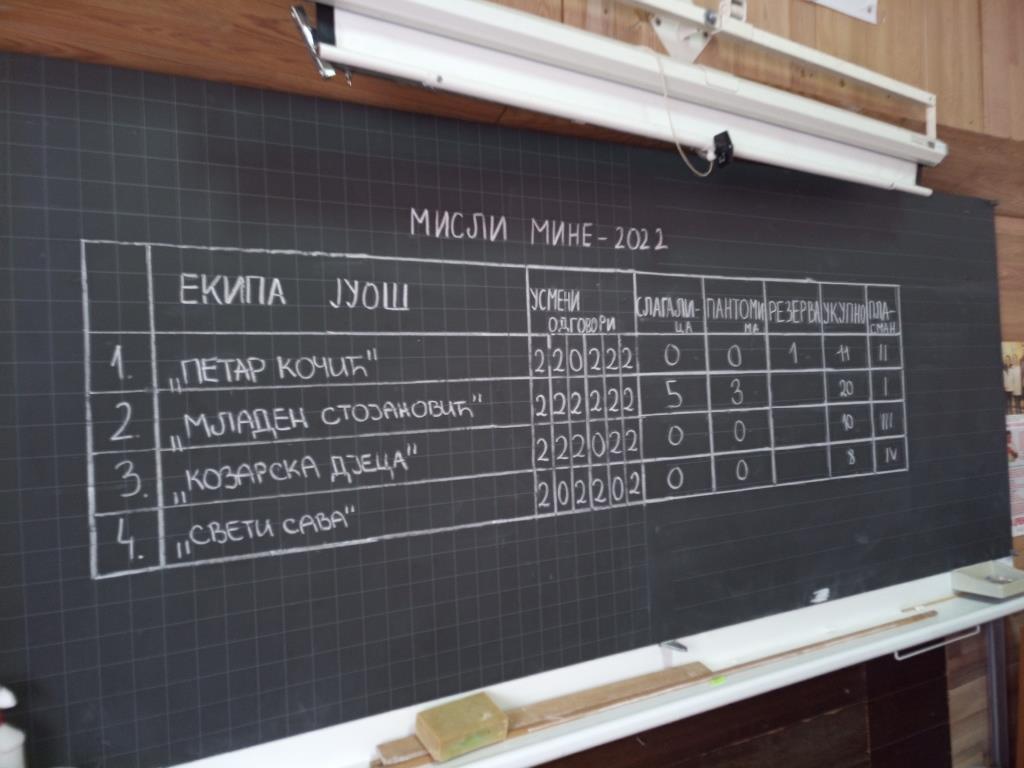 МИСЛИ МИНЕ - 2022
ЕКИПА ЈУОШ УСМЕНИ ОДГОВОРИ СЛАГАЛИ-ЦА ПАНТОМИМА РЕЗЕРВА УКУПНО ПЛА-СМАН
1. „ПЕТАР КОЧИЋ" 2 2 0 2 2 2 0 0 1 11 II
2. „МЛАДЕН СТОЈАНОВИЋ" 2 2 2 2 2 2 5 3 20 I
3. „КОЗАРСКА ДЈЕЦА" 2 2 2 0 2 2 0 0 10 III
4. „СВЕТИ САВА" 2 0 2 2 0 2 0 0 8 IV